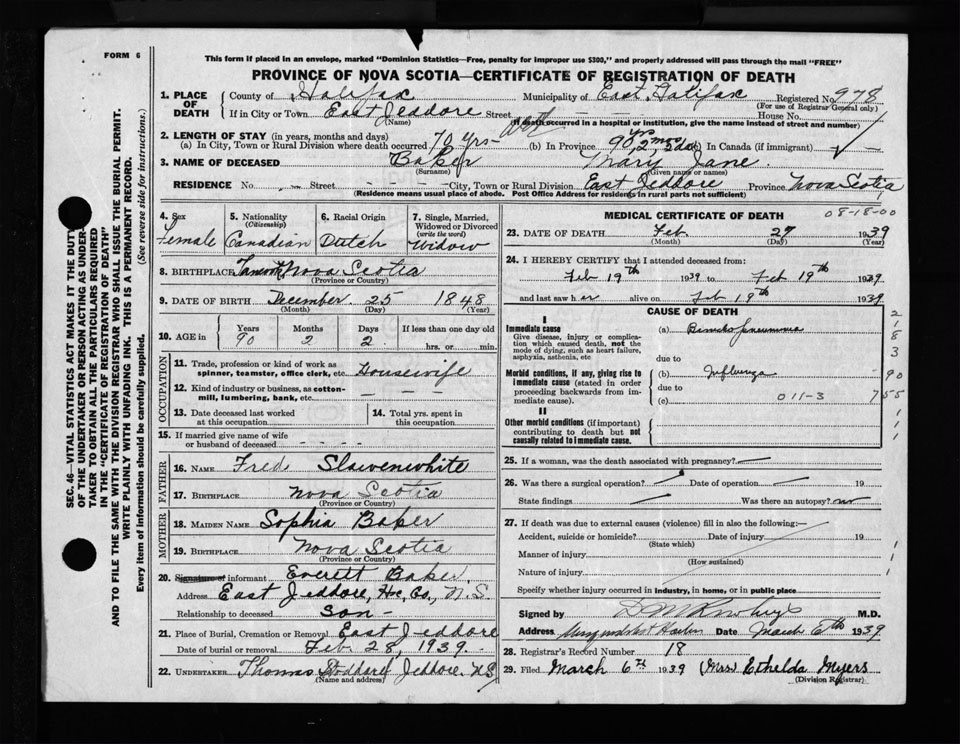 FORM 6
This form if placed in an envelope, marked "Dominion Statistics—Free, penalty for improper use $300," and properly addressed will pass through the mail "FREE"
PROVINCE OF NOVA SCOTIA—CERTIFICATE OF REGISTRATION OF DEATH
1. PLACE OF DEATH County of Halifax Municipality of East Halifax Registered No 978
(For use of Registrar General only)
If in City or Town East Jeddore Street House No.
(Name) (If death occurred in a hospital or institution, give the name instead of street and number)
2. LENGTH OF STAY (in years, months and days)
(a) In City, Town or Rural Division where death occurred 70 yrs - (b) In Province 90 yrs 2 mos 2 da (c) In Canada (if immigrant) -
3. NAME OF DECEASED Baker Mary Jane
(Surname) (Given name or names)
RESIDENCE No. - Street - - - City, Town or Rural Division East Jeddore Province Nova Scotia
(Residence means usual place of abode. Post Office Address for residents in rural parts not sufficient)
4. Sex Female
5. Nationality (Citizenship) Canadian
6. Racial Origin Dutch
7. Single, Married, Widowed or Divorced (write the word) Widow
8. BIRTHPLACE Nova Scotia
(Province or Country)
9. DATE OF BIRTH December 25 1848
(Month) (Day) (Year)
10. AGE in Years 90 Months 2 Days 2 If less than one day hrs. or min.
OCCUPATION
11. Trade, profession or kind of work as spinner, teamster, office clerk, etc. Housewife
12. Kind of industry or business, as cotton-mill, lumbering, bank, etc. — — —
13. Date deceased last worked at this occupation
14. Total yrs. spent in this occupation
15. If married give name of wife or husband of deceased - - - -
FATHER
16. NAME Fred Slawenwhite
17. BIRTHPLACE Nova Scotia
(Province or Country)
MOTHER
18. MAIDEN NAME Sophia Baker
19. BIRTHPLACE Nova Scotia
(Province or Country)
20. Signature of informant Everett Baker
Address East Jeddore, Hx, Co., N.S.
Relationship to deceased son -
21. Place of Burial, Cremation or Removal East Jeddore
Date of burial or removal Feb. 28, 1939. -
22. UNDERTAKER Thomas Stoddard Jeddore NS
(Name and address)
MEDICAL CERTIFICATE OF DEATH
08-18-00
23. DATE OF DEATH Feb. 27 1939
(Month) (Day) (Year)
24. I HEREBY CERTIFY that I attended deceased from:
Feb 19th 1939 to Feb 19th 1939
and last saw her alive on Feb 19th 1939
CAUSE OF DEATH
I
Immediate cause
Give disease, injury or complication which caused death, not the mode of dying, such as heart failure, asphyxia, asthenia, etc
(a) Broncho pneumonia
due to
Morbid conditions, if any, giving rise to immediate cause (stated in order proceeding backwards from immediate cause).
(b) Influenza
due to
(c) 011-3
II
Other morbid conditions (if important) contributing to death but not causally related to immediate cause.
25. If a woman, was the death associated with pregnancy?
26. Was there a surgical operation? Date of operation 19
State findings Was there an autopsy? no
27. If death was due to external causes (violence) fill in also the following:—
Accident, suicide or homicide? Date of injury 19
(State which)
Manner of injury
(How sustained)
Nature of injury
Specify whether injury occurred in industry, in home, or in public place
Signed by M.D.
Address Date March 6th 1939
28. Registrar's Record Number 18
29. Filed March 6th 1939 (Mrs) Ethelda Myers
(Division Registrar)
SEC. 46—VITAL STATISTICS ACT MAKES IT THE DUTY
OF THE UNDERTAKER OR PERSON ACTING AS UNDERTAKER TO OBTAIN ALL THE PARTICULARS REQUIRED
IN THE "CERTIFICATE OF REGISTRATION OF DEATH"
AND TO FILE THE SAME WITH THE DIVISION REGISTRAR WHO SHALL ISSUE THE BURIAL PERMIT.
WRITE PLAINLY WITH UNFADING INK. THIS IS A PERMANENT RECORD.
Every item of information should be carefully supplied. (See reverse side for instructions.)